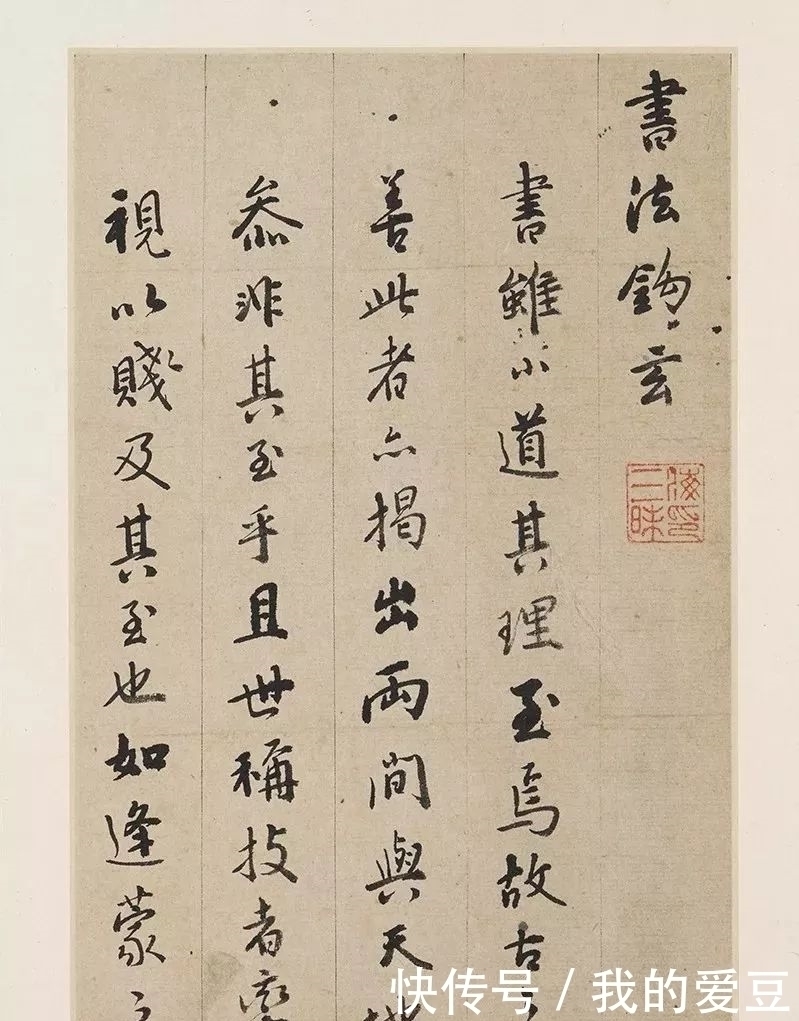 書法鈎玄
書雖小道其理至焉故古
善此者亦揭出兩間與天地
叅非其至乎且世稱技者
視以賤及其至也如逢蒙之
海印三昧
快传号 / 我的爱豆